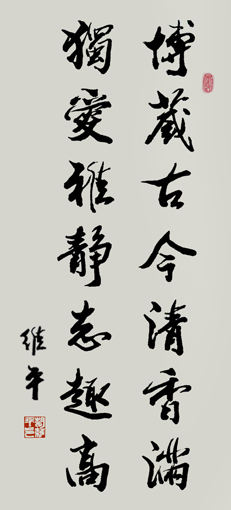 博藏古今清香满
獨愛雅靜志趣高
維平